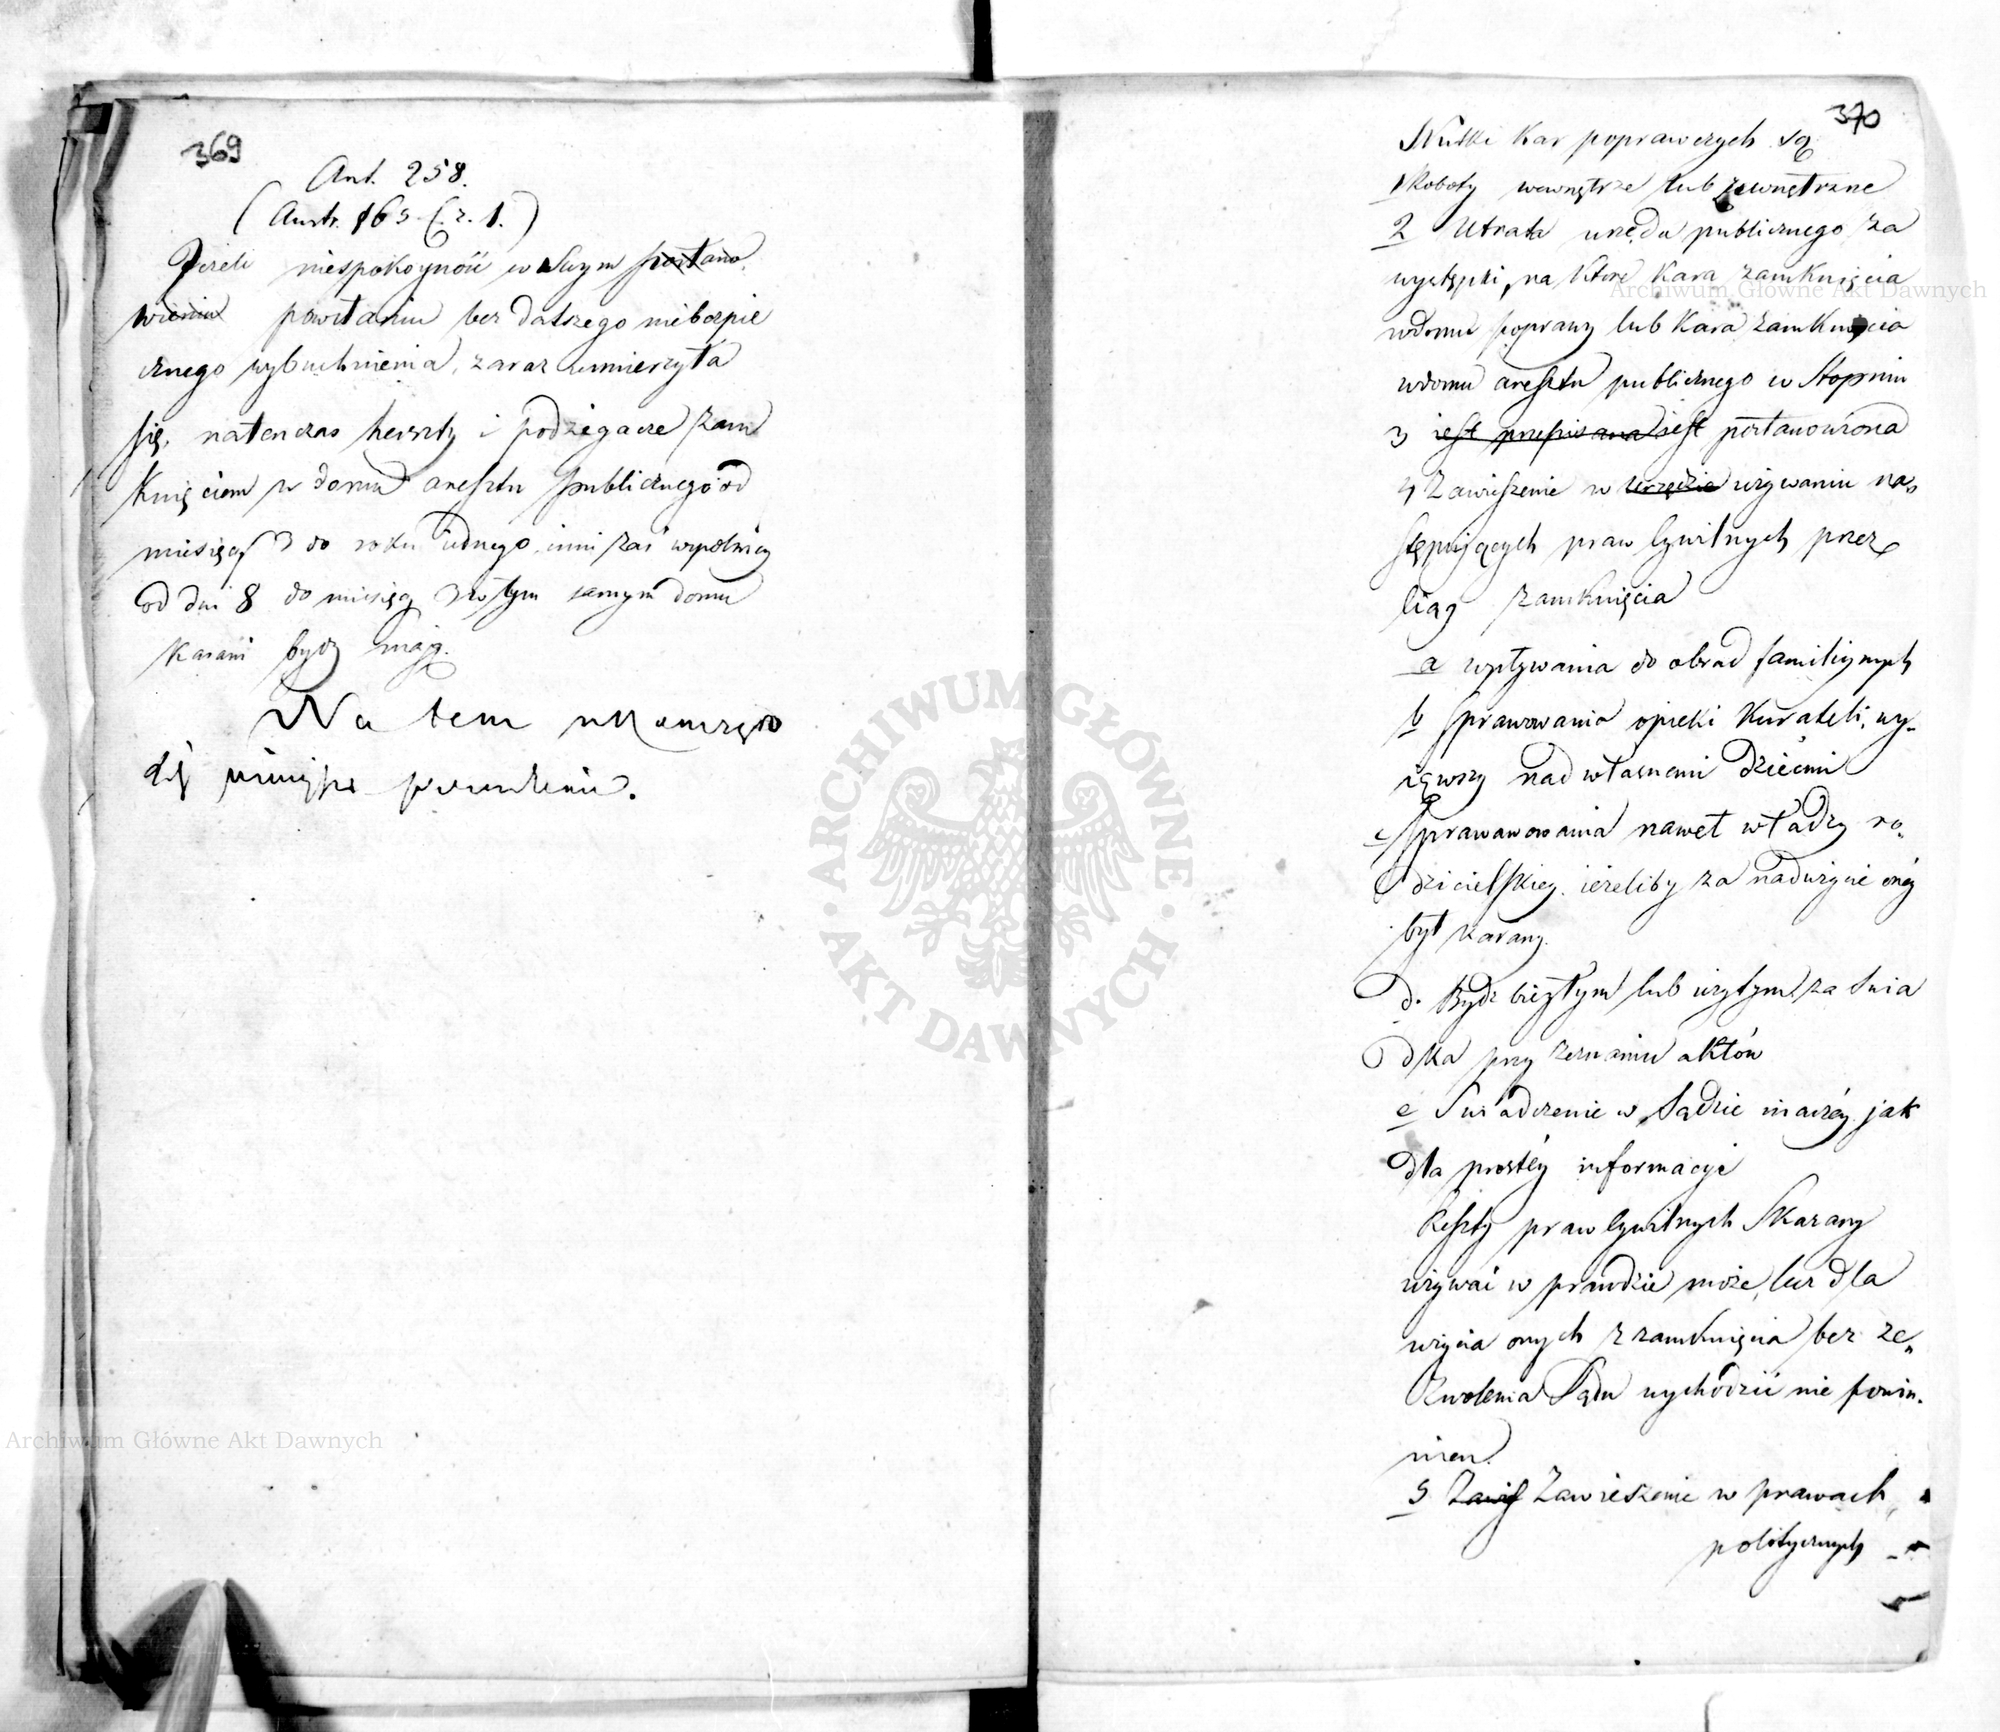 369
Art. 258.
(Austr. 165 cz. 1.)
Jeżeli niespokoyność w swym postano
wieniu powstaniu bez dalszego niebezpie
cznego wybuchnienia, zaraz uśmierzyła
się, natenczas herszty i podżegacze zam
knięciem w domu aresztu publicznego od
miesięcy 3 do roku iednego, inni zaś wspólnicy
od dni 8 do miesięcy 3 w tym samym domu
karani bydź mają.
Na tem ukończono
dziś posiedzenie.
370
Skutki kar poprawczych są
1 Roboty wewnętrze lub zewnętrzne
2 Utrata urzędu publicznego za
występki, na które kara zamknięcia
w domu poprawy lub kara zamknięcia
w domu aresztu publicznego w Stopniu
3 iest przepisana iest postanowiona
4 Zawieszenie w urzędzie używaniu na„
stępuiących praw Cywilnych przez
Ciąg zamknięcia
a wpływania do obrad familiynych
b sprawowania opieki kurateli, wy„
iąwszy nad własnemi dziećmi
c sprawowania nawet władzy ro„
dzicielskiey, ieżeliby za nadużycie oney
był karany.
d. Bydź wziętym lub użytym za świa
dka przy zeznaniu aktów
e Świadczenie w Sądzie inaczéy jak
dla prostéy informacyi
Reszty praw Cywilnych Skazany
używać w prawdzie może, lecz dla
użycia onych z zamknięcia bez ze„
zwolenia Sądu wychodzić nie powi„
nien.
5 Zawies Zawieszenie w prawach
politycznych
Archiwum Główne Akt Dawnych
Archiwum Główne Akt Dawnych
ARCHIWUM GŁÓWNE
AKT DAWNYCH